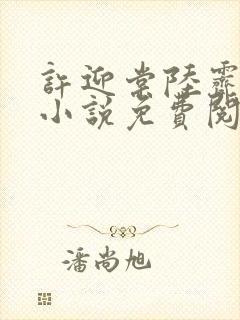 許迎棠陸霽
小說免費閱
潘尚旭